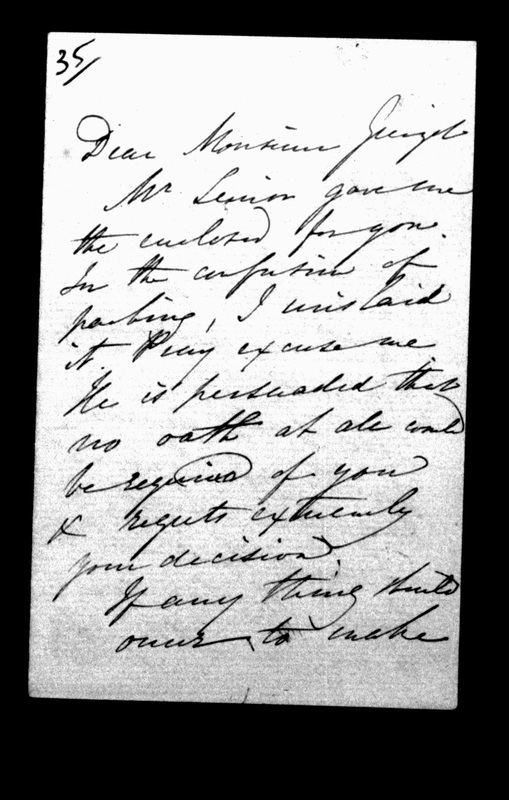 35/
Dear Monsieur Guizot
Mr Senior gave me
the enclosed for you.
In the confusion of
packing, I mislaid
it. Pray excuse me
He is persuaded that
no oath at all would
be required of you
& regrets extremely
your decision.
If any thing should
occur to make